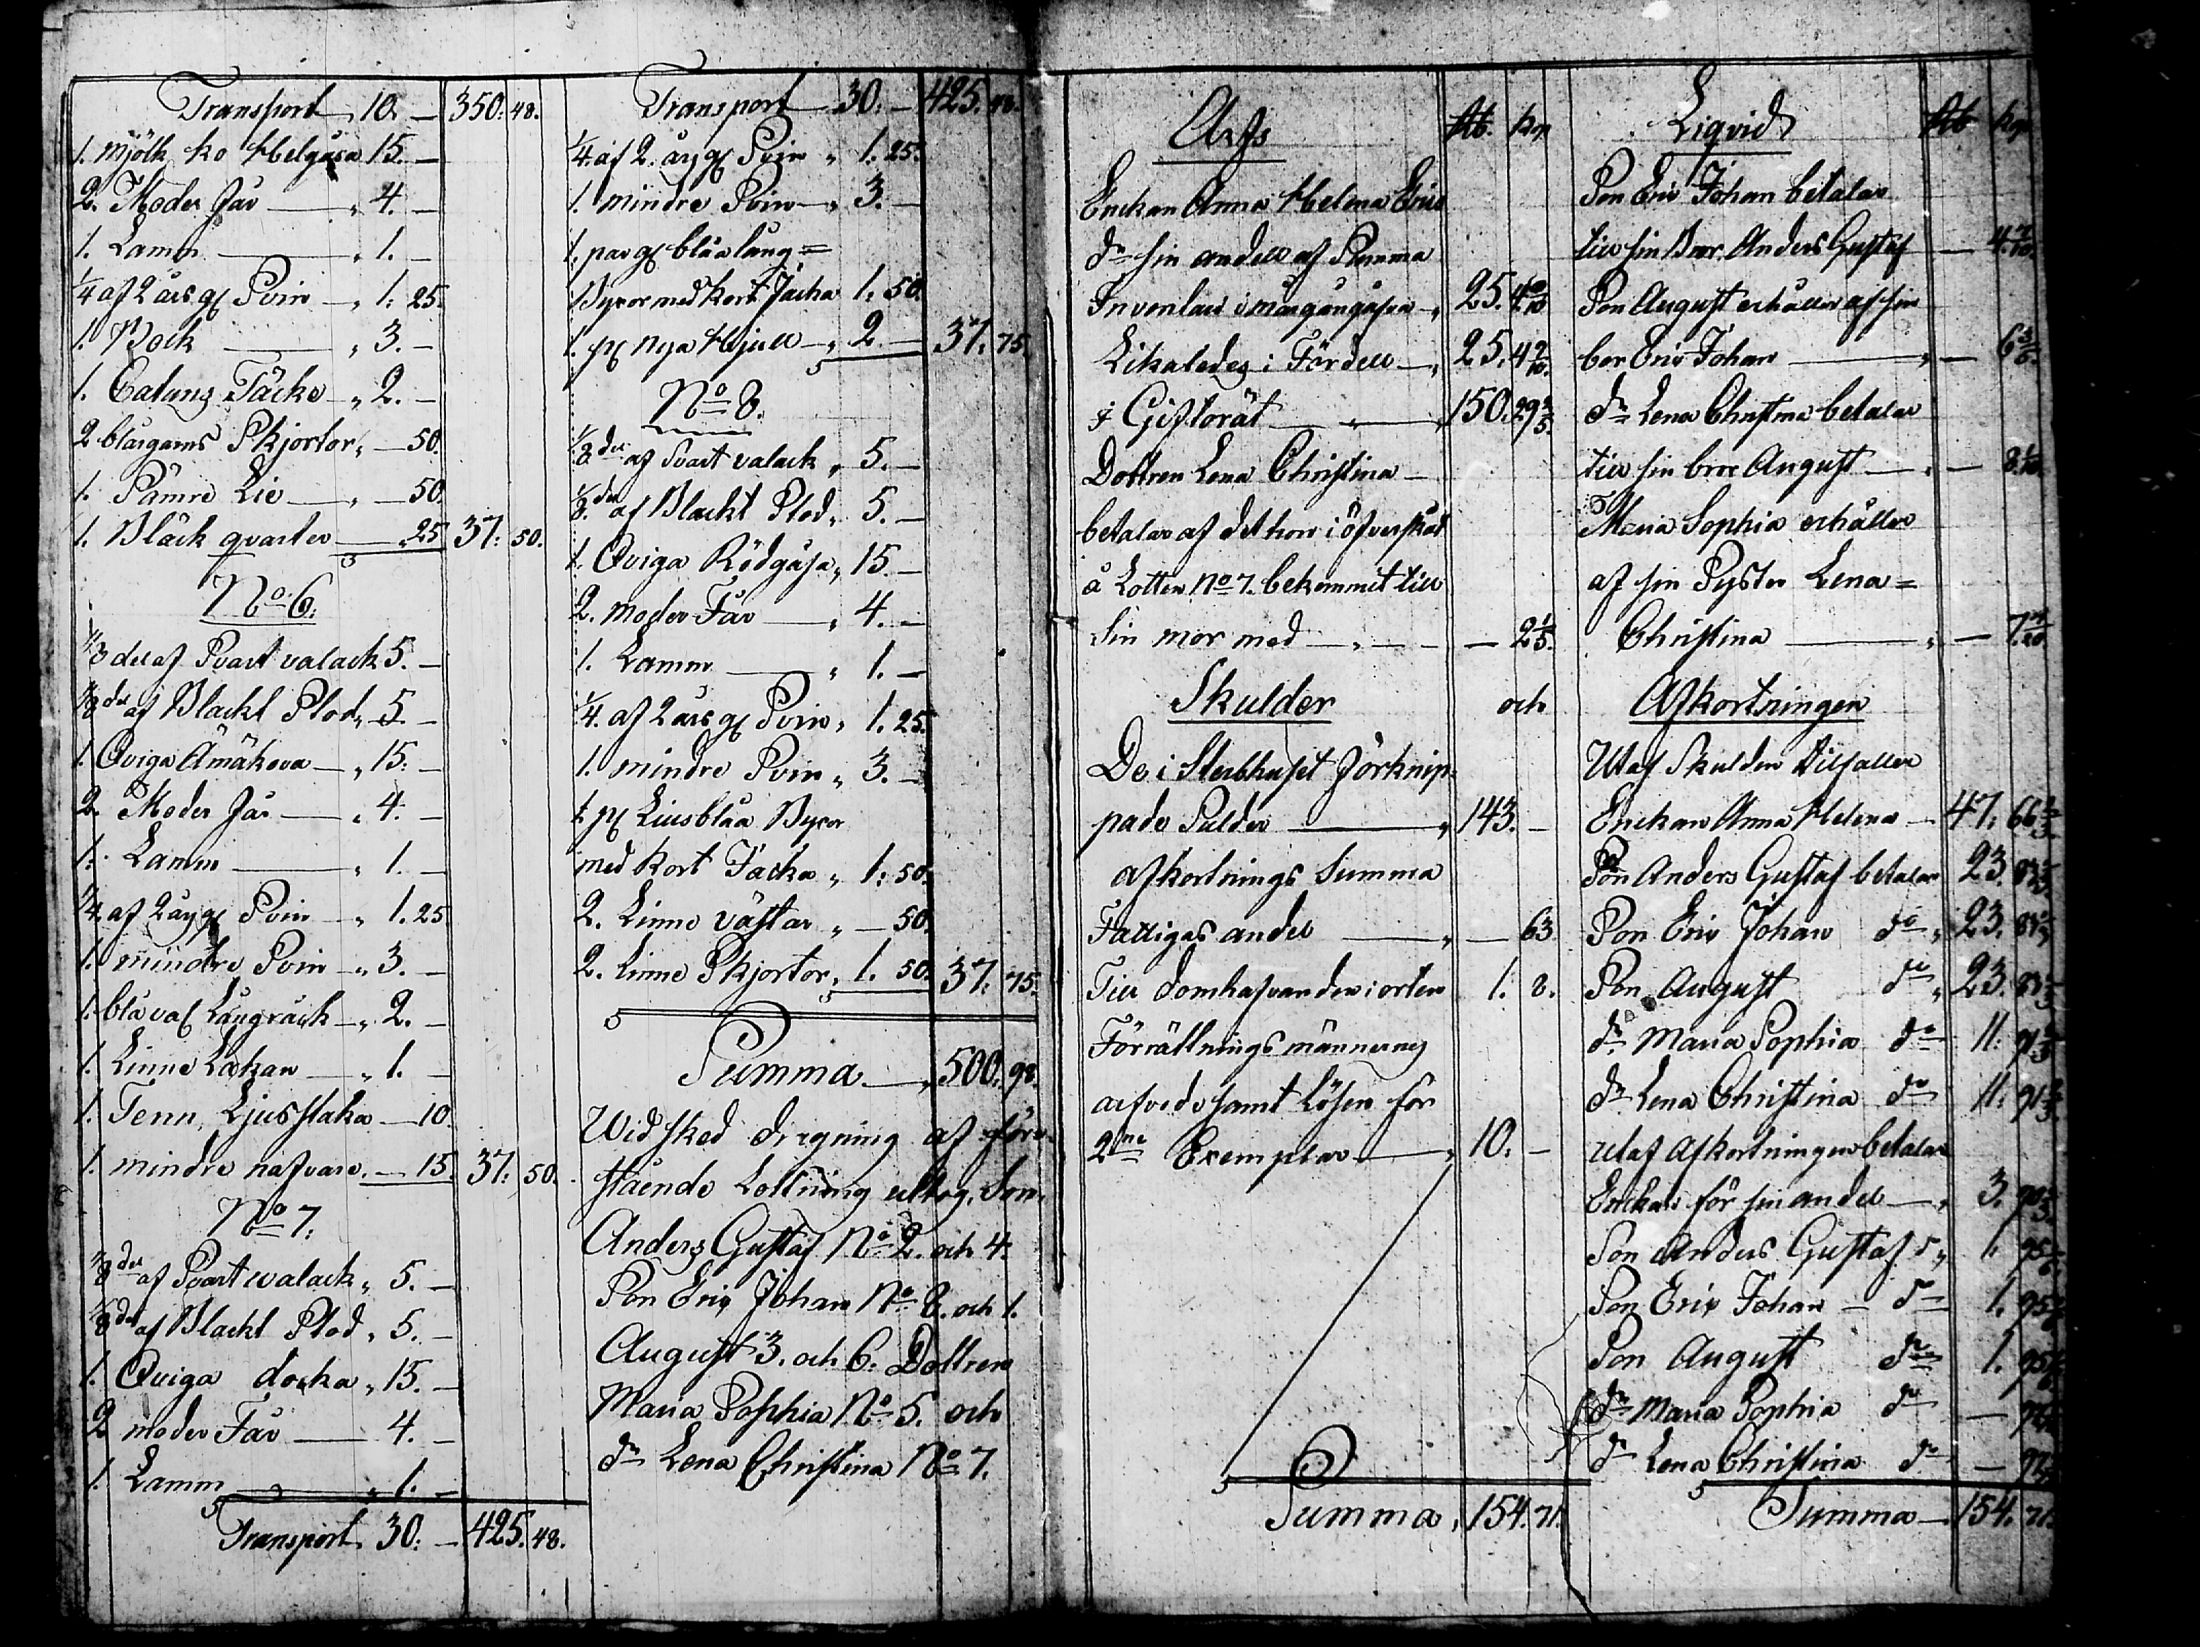 Transport 10. — 350: 48.
1. Mjölk ko Helgåsa 15. —
2. Moder får — " 4. —
1. Lamm — " 1. —
1/4 af 2 års gl Svin — " 1: 25.
1. Bock — " 3. —
1. Catuns Täcke — " 2. —
2 blårgarns Skjortor " — 50.
1. Sämre Lie — " — 50
1. Bläck qvarter — " 25 37: 50.
No 6:
1/8 del af Svart valack 5. —
1/8 del af Blackt Stod " 5. —
1. Qviga Ämäkova — " 15: —
2. Moder får — " 4. —
1. Lamm — " 1. —
1/4 af 2 års gl Svin — " 1. 25
1. mindre Svin — " 3. —
1. blå val Långråck — " 2. —
1. Linne Lakan — " 1. —
1. Tenn Ljusstaka — 10.
1. mindre nafvare. — 15. 37: 50.
No 7:
1/8 del af Svart valack " 5. —
1/8 del af Blackt Stod " 5. —
1. Qviga docka " 15. —
2 moder Får — 4. —
1. Lamm — " 1. —
Transport 30: — 425. 48.
Transport 30: — 425. 48.
1/4 af 2. års gl Svin " 1. 25.
1. mindre Svin — " 3. —
1. par gl blåa lång=
Byxor med kort Jacka 1: 50.
1. pr nya Hjull — " 2 — 37. 75.
No 8.
1/8 del af Svart valack " 5. —
1/8 del af Blackt Stod " 5. —
1. Qviga Rödgåsa " 15. —
2. moder Får — " 4. —
1. Lamm — " 1. —
1/4. af 2 års gl Svin " 1. 25.
1. mindre Svin " 3. —
1. pr Liusblåa Byxor
med kort Jacka " 1: 50.
2. Linne västar " — 50.
2. Linne Skjortor " 1. 50. 37: 75.
Summa — " 500. 98.
Wid sked dragning af före
stående Lottning uttog, Son
Anders Gustaf No 2. och 4.
Son Eric Johan No 8. och 1.
August 3. och 6: Dottren
Maria Sophia No 5. och
dr Lena Christina No 7.
Arfs Rb. kop
Enckan Anna Helena Erics
dr sin andell af Samma
Inventari i morgongåfva " 25. 4 9/10
Likaledes i Fördell — " 25. 4 9/10.
i Giftorät — " — 150. 29 2/5.
Dottren Lena Christina —
betalar af det hon i öfverskot
å Lotten No 7. bekommit till
Sin mor med — " — — 2 1/5.
Skulder och
De i Sterbhuset förknip=
pade Skulder — " 143. —
afkortnings Summa
Fattigas andel — " — 63
Till domhafvanden i orten 1. 8.
Förrättningsmännernes
arfvode samt Lösen för
2ne Exemplar — " 10. —
Summa " 154. 71.
Liqvid Rb kop
Son Eric Johan betalar
till sin Bror Anders Gustaf —
Son August erhåller af sin
bor Eric Johan — " —
dr Lena Christina betalar
till sin bror August — " —
Maria Sophia erhåller
af sin Syster Lena=
Christina — " —
Afkortningen
Utaf Skulden tilfaller
Enckan Anna Helena — 47. 66 2/3
Son Anders Gustaf betalar 23.
Son Eric Johan do " 23.
Son August do " 23.
dr Maria Sophia do 11:
dr Lena Christina do 11:
utaf Afkortningen betalar
Enckan för sin andel — " 3.
Son Anders Gustaf do " 1.
Son Eric Johan — do 1.
Son August do 1.
dr Maria Sophia do —
dr Lena Christina do —
Summa — 154. 71.